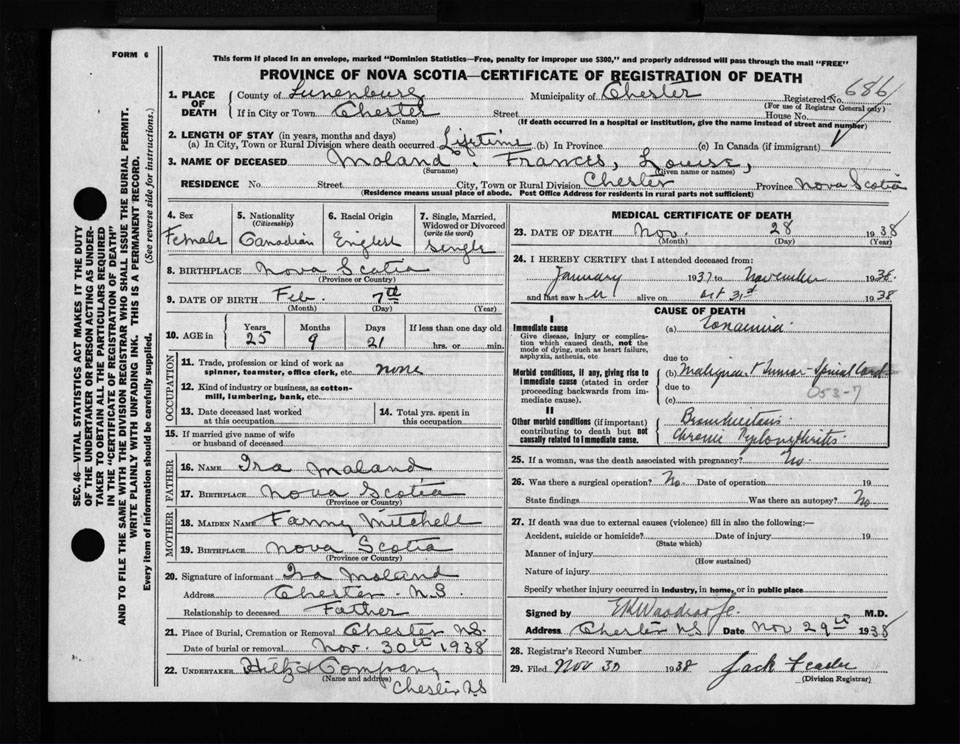 FORM 6
This form if placed in an envelope, marked "Dominion Statistics—Free, penalty for improper use $300," and properly addressed will pass through the mail "FREE"
PROVINCE OF NOVA SCOTIA—CERTIFICATE OF REGISTRATION OF DEATH
1. PLACE OF DEATH County of Lunenburg Municipality of Chester Registered No. 686
(For use of Registrar General only)
If in City or Town Chester Street House No.
(Name) (If death occurred in a hospital or institution, give the name instead of street and number)
2. LENGTH OF STAY (in years, months and days)
(a) In City, Town or Rural Division where death occurred Lifetime (b) In Province (c) In Canada (if immigrant)
3. NAME OF DECEASED Moland. Frances, Louise,
(Surname) (Given name or names)
RESIDENCE No. Street City, Town or Rural Division Chester Province Nova Scotia
(Residence means usual place of abode. Post Office Address for residents in rural parts not sufficient)
4. Sex 5. Nationality (Citizenship) 6. Racial Origin 7. Single, Married, Widowed or Divorced (write the word)
Female Canadian English Single
8. BIRTHPLACE Nova Scotia
(Province or Country)
9. DATE OF BIRTH Feb. 7th
(Month) (Day) (Year)
10. AGE in Years Months Days If less than one day old
25 9 21 hrs. or min.
OCCUPATION
11. Trade, profession or kind of work as spinner, teamster, office clerk, etc. none
12. Kind of industry or business, as cotton-mill, lumbering, bank, etc.
13. Date deceased last worked at this occupation 14. Total yrs. spent in this occupation
15. If married give name of wife or husband of deceased
FATHER
16. NAME Ira Moland
17. BIRTHPLACE Nova Scotia
(Province or Country)
MOTHER
18. MAIDEN NAME Fanny Mitchell
19. BIRTHPLACE Nova Scotia
(Province or Country)
20. Signature of informant Ira Moland
Address Chester. N.S.
Relationship to deceased Father
21. Place of Burial, Cremation or Removal Chester NS.
Date of burial or removal Nov. 30th 1938
22. UNDERTAKER Hiltz & Company,
(Name and address) Chester NS
MEDICAL CERTIFICATE OF DEATH
23. DATE OF DEATH Nov. 28 1938
(Month) (Day) (Year)
24. I HEREBY CERTIFY that I attended deceased from:
January 1937 to November 1938
and last saw her alive on Oct 31st 1938
CAUSE OF DEATH
I
Immediate cause
Give disease, injury or complication which caused death, not the mode of dying, such as heart failure, asphyxia, asthenia, etc
(a)
due to
Morbid conditions, if any, giving rise to immediate cause (stated in order proceeding backwards from immediate cause).
(b) Malignant Tumor - Spinal Cord
due to 053-7
(c)
II
Other morbid conditions (if important) contributing to death but not causally related to immediate cause.
Chronic
25. If a woman, was the death associated with pregnancy? No
26. Was there a surgical operation? No. Date of operation 19
State findings Was there an autopsy? No
27. If death was due to external causes (violence) fill in also the following:—
Accident, suicide or homicide? Date of injury 19
(State which)
Manner of injury
(How sustained)
Nature of injury
Specify whether injury occurred in industry, in home, or in public place
Signed by M.D.
Address Chester NS Date Nov 29th 1938
28. Registrar's Record Number
29. Filed Nov 30 1938 Jack
(Division Registrar)
SEC. 46—VITAL STATISTICS ACT MAKES IT THE DUTY
OF THE UNDERTAKER OR PERSON ACTING AS UNDER-
TAKER TO OBTAIN ALL THE PARTICULARS REQUIRED
IN THE "CERTIFICATE OF REGISTRATION OF DEATH"
AND TO FILE THE SAME WITH THE DIVISION REGISTRAR WHO SHALL ISSUE THE BURIAL PERMIT.
WRITE PLAINLY WITH UNFADING INK. THIS IS A PERMANENT RECORD.
Every item of information should be carefully supplied. (See reverse side for instructions.)